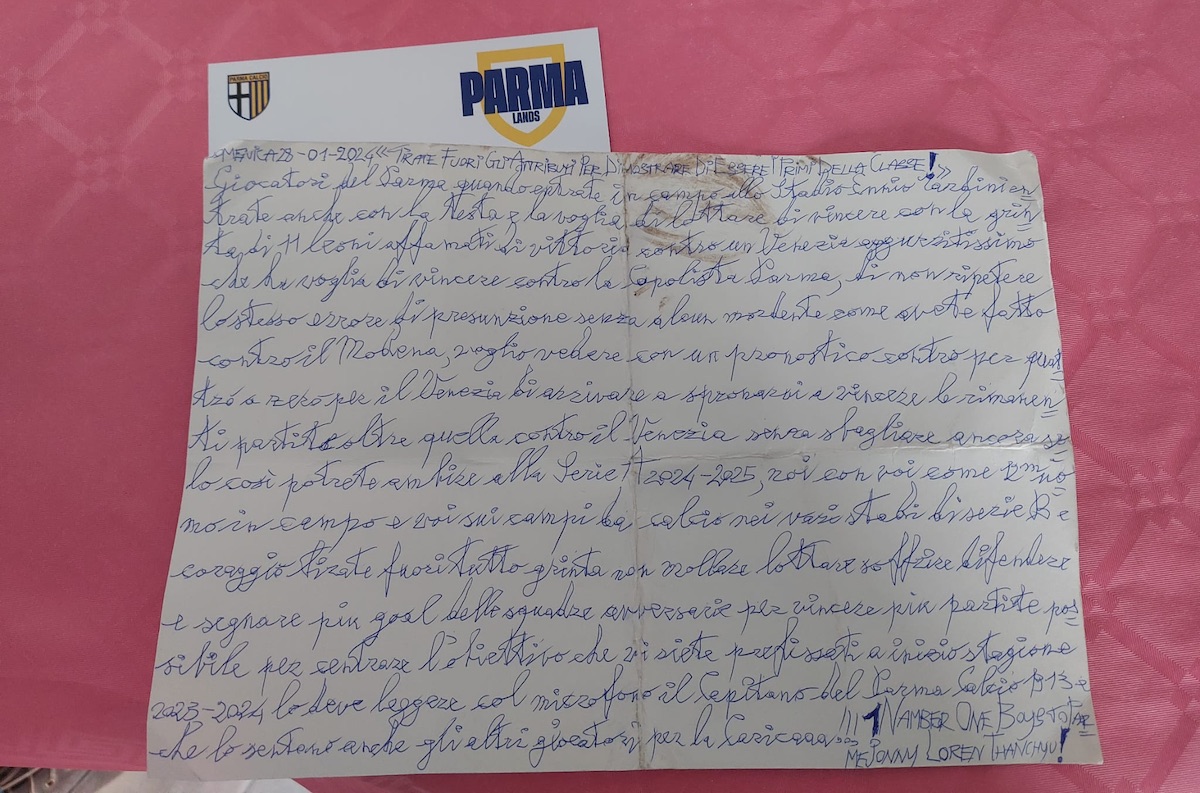 PARMA CALCIO
PARMA
LANDS
MENICA 28-01-2024 «TIRATE FUORI GLI ATTRIBUTI PER DIMOSTRARE DI ESSERE I PRIMI DELLA CLASSE!»
Giocatori del Parma quando entrate in campo allo Stadio Ennio Tardini en
trate anche con la testa e la voglia di lottare di vincere con la grin
ta di 11 leoni affamati di vittoria contro un Venezia agguerritissimo
che ha voglia di vincere contro la Capolista Parma, di non ripetere
lo stesso errore di presunzione senza alcun mordente come avete fatto
contro il Modena, voglio vedere con un pronostico contro per quat
tro a zero per il Venezia di arrivare a spronarvi a vincere le rimanen
ti partite oltre quella contro il Venezia senza sbagliare ancora so
lo così potrete ambire alla Serie A 2024-2025, noi con voi come 12m uo
mo in campo e voi sui campi da calcio nei vari stadi di serie B e
coraggio tirate fuori tutto grinta non mollare lottare soffrire difendere
e segnare più goal delle squadre avversarie per vincere più partite pos
sibile per centrare l'obiettivo che vi siete prefissati a inizio stagione
2023-2024 lo deve leggere col microfono il Capitano del Parma Calcio 1913 e
che lo sentano anche gli altri giocatori per la Caricaaa!!!
!!! 1 NAMBER ONE BOYS
ME JONNY LOREN THANCHYU!